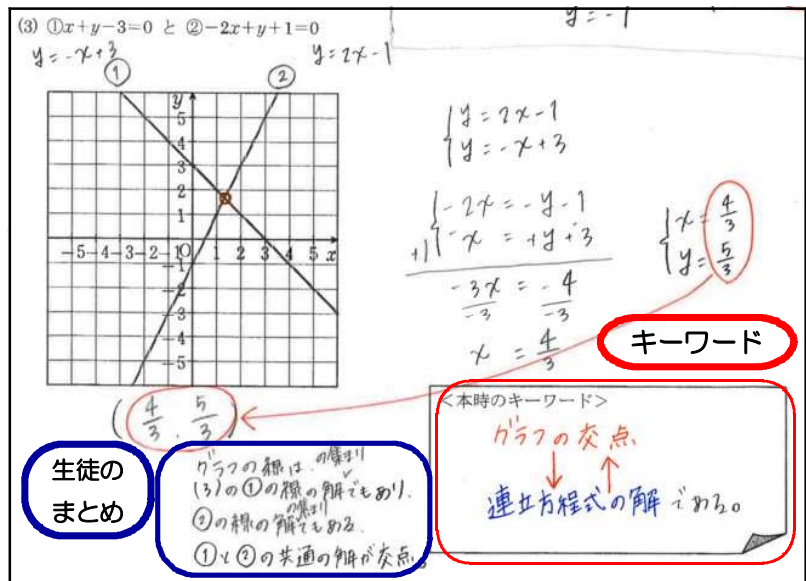 (3) ①x+y−3=0 と ②−2x+y+1=0
y=-1
y=-x+3
y=2x-1
①
②
y
5
4
3
2
1
-5-4-3-2-1O 1 2 3 4 5 x
-1
-3
-4
-5
{y=2x-1
{y=-x+3
{-2x=-y-1
-3x = -4
-3 -3
x = 4/3
{x=4/3
{y=5/3
キーワード
(4/3, 5/3)
<本時のキーワード>
グラフの交点
連立方程式の解である。
生徒の
まとめ
グラフの線は、の集まり
(3)の①の線の解でもあり、
の集まり
②の線の解でもある。
①と②の共通の解が交点。